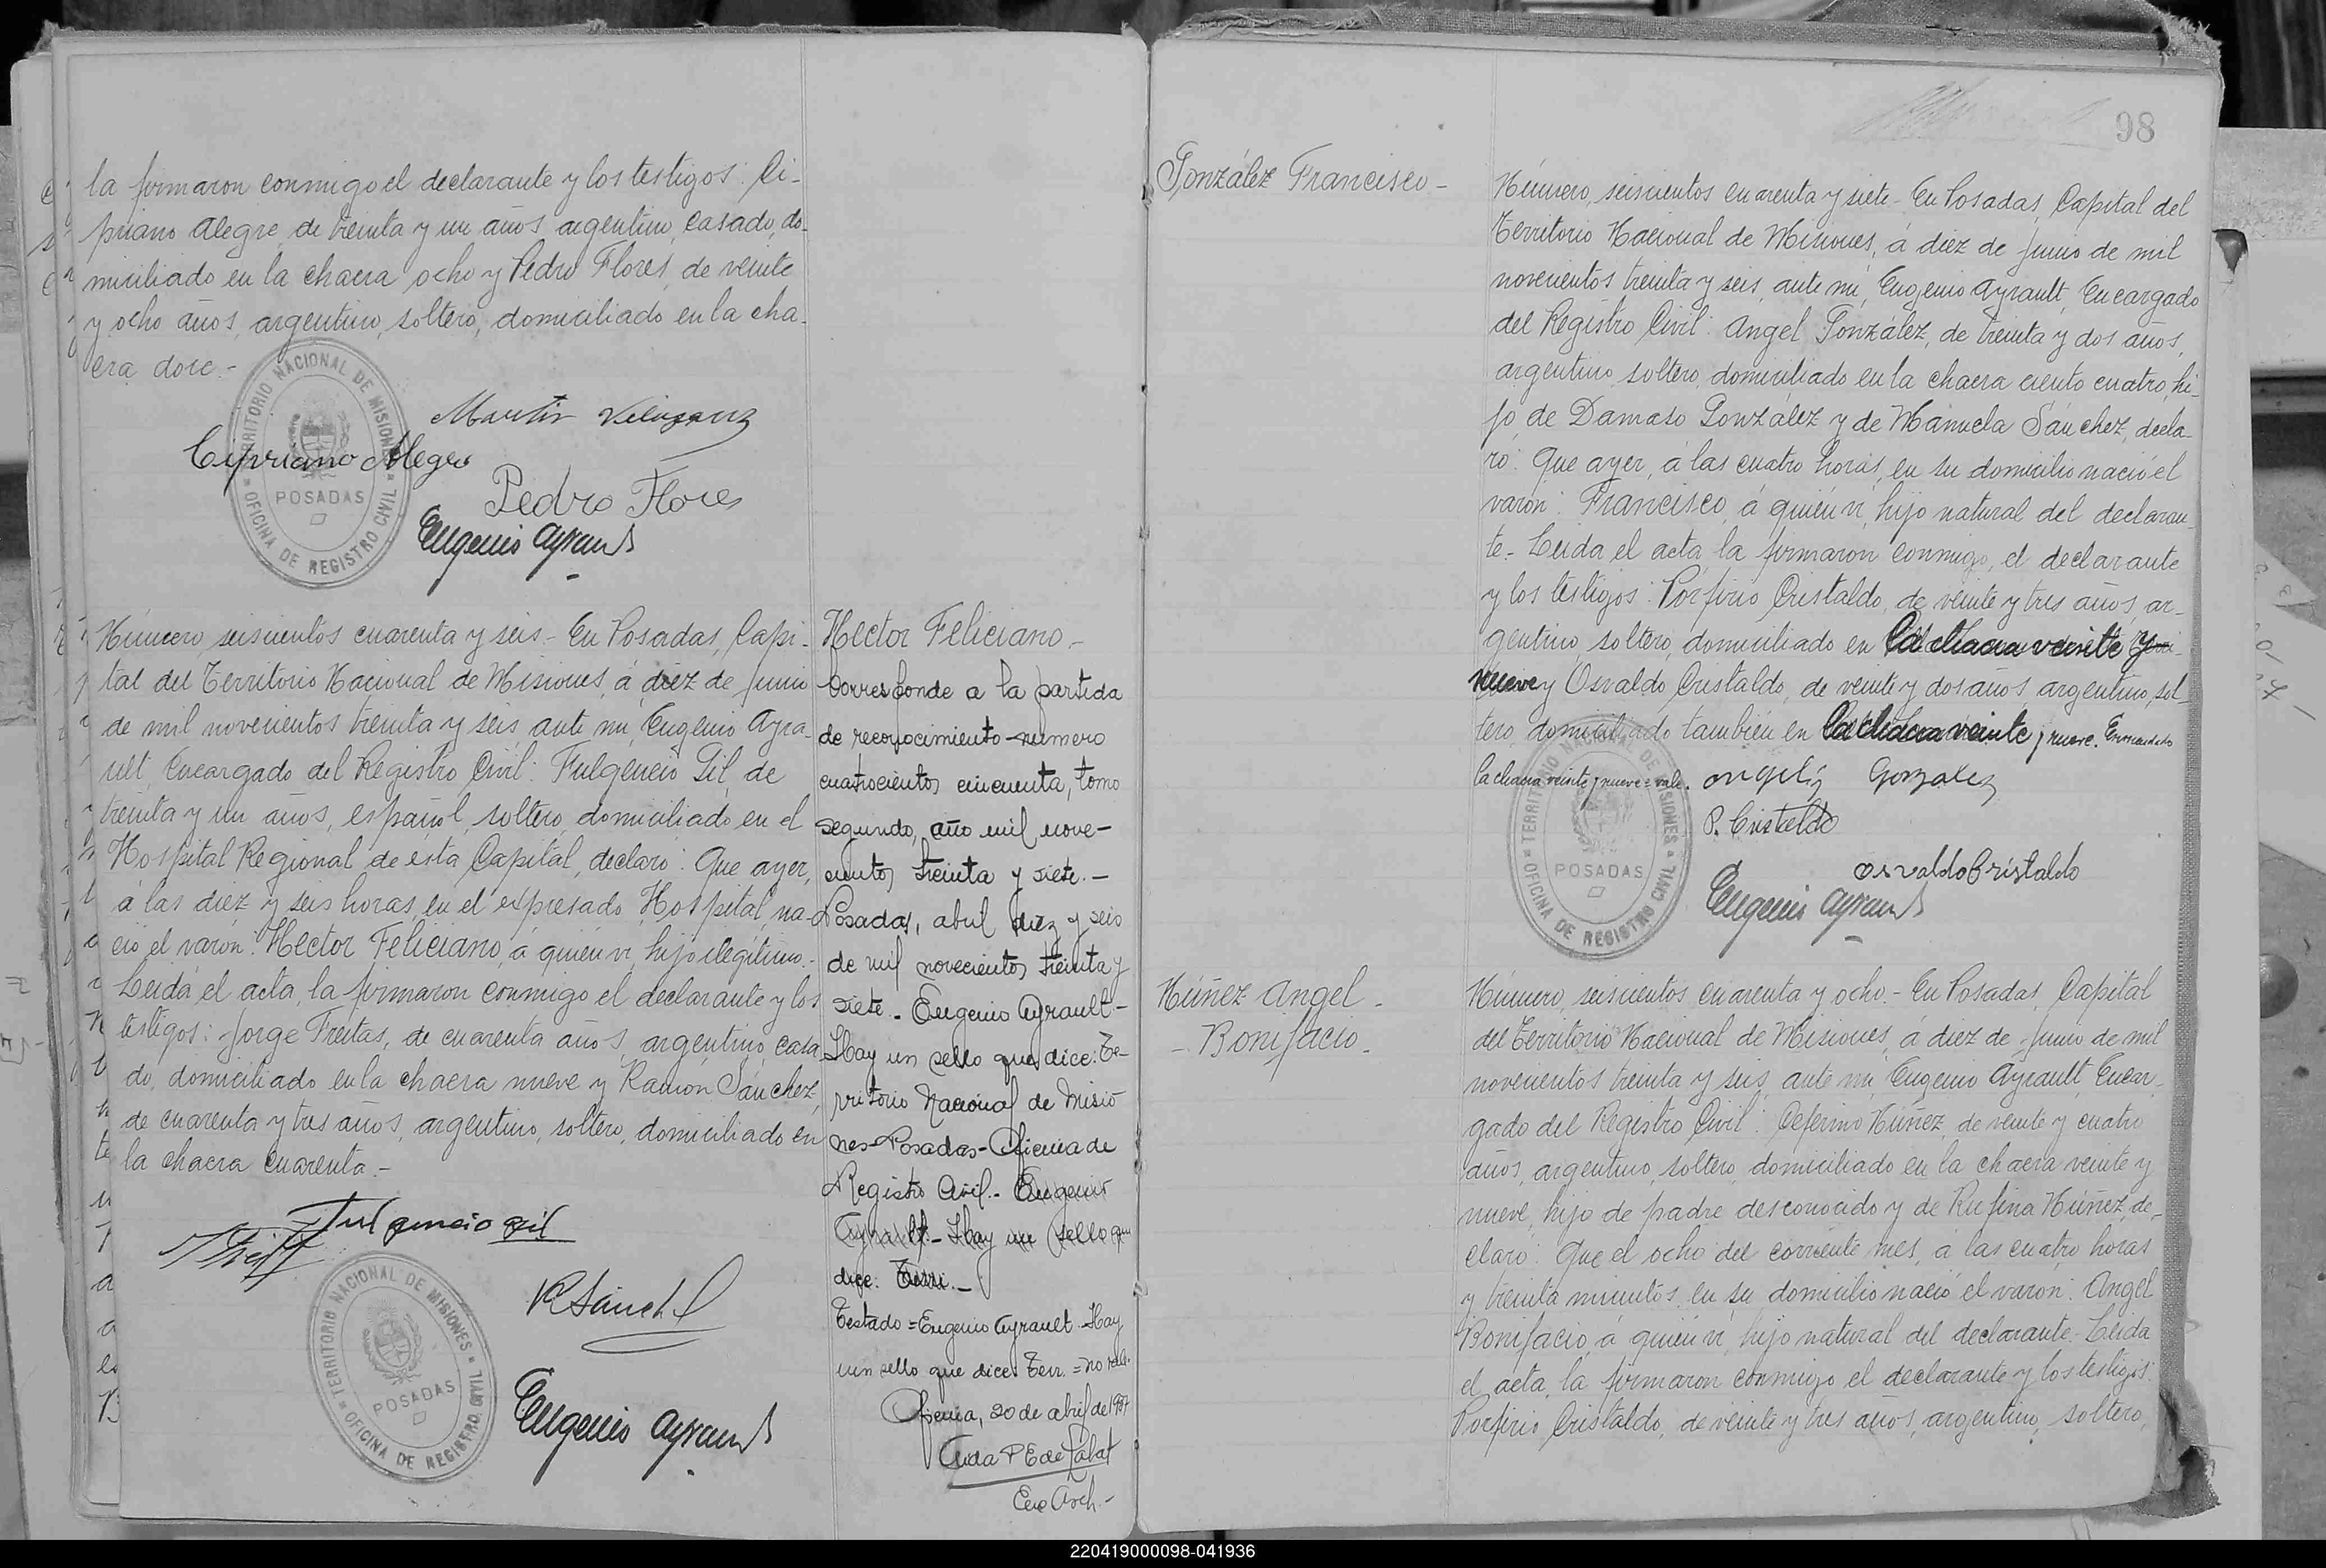 la firmaron conmigo el declarante y los testigos: Ci-
priano Alegre, de treinta y un años, argentino, casado, do-
miciliado en la chacra ocho y Pedro Flores, de veinte
y ocho años, argentino, soltero, domiciliado en la cha-
cra doce.-
Martin
Cipriano Alegre
Pedro Flores
Eugenio Ayrault
TERRITORIO NACIONAL DE MISIONES
POSADAS
OFICINA DE REGISTRO CIVIL
Número seiscientos cuarenta y seis - En Posadas, Capi-
tal del Territorio Nacional de Misiones, á diez de Junio
de mil novecientos treinta y seis, ante mi, Eugenio Ayra-
ult, Encargado del Registro Civil: Fulgencio Gil, de
treinta y un años, español, soltero, domiciliado en el
Hospital Regional de esta Capital, declaró: Que ayer,
á las diez y seis horas, en el expresado Hospital, na-
ció el varón: Hector Feliciano, á quién ví, hijo ilegítimo.-
Leída el acta, la firmaron conmigo el declarante y los
testigos: Jorge Freitas, de cuarenta años, argentino, casa-
do, domiciliado en la chacra nueve y Ramón Sánchez,
de cuarenta y tres años, argentino, soltero, domiciliado en
la chacra cuarenta.-
Fulgencio Gil
R Sánchez
Eugenio Ayrault
TERRITORIO NACIONAL DE MISIONES
POSADAS
OFICINA DE REGISTRO CIVIL
Hector Feliciano.-
Corresponde a la partida
de reconocimiento número
cuatrocientos cincuenta, tomo
segundo, año mil nove-
cientos treinta y siete.-
Posadas, abril diez y seis
de mil novecientos treinta y
siete.- Eugenio Ayrault-
Hay un sello que dice: Te-
rritorio Nacional de Misio
nes-Posadas-Oficina de
Registro Civil.- Eugenio
Ayrault.- Hay un sello que
dice: Terri.-
Testado = Eugenio Ayrault - Hay
un sello que dice: Terr. = no vale.
Oficina, 20 de abril de 1937
Enc Arch.-
98
González Francisco -
Número, seiscientos cuarenta y siete - En Posadas, Capital del
Territorio Nacional de Misiones, á diez de Junio de mil
novecientos treinta y seis, ante mi, Eugenio Ayrault, Encargado
del Registro Civil: Angel González, de treinta y dos años,
argentino, soltero, domiciliado en la chacra ciento cuatro, hi-
jo de Damaso González y de Manuela Sánchez, decla-
ró: Que ayer, á las cuatro horas, en su domicilio nació el
varón: Francisco, á quién ví, hijo natural del declaran-
te - Leida el acta, la firmaron conmigo, el declarante
y los testigos: Porfirio Cristaldo, de veinte y tres años, ar-
gentino, soltero, domiciliado en la chacra veinte y
nueve y Osvaldo Cristaldo, de veinte y dos años, argentino, sol-
tero, domiciliado también en la chacra veinte y nueve. Enmendado
la chacra veinte y nueve = vale.
Angel Gonzalez
P. Cristaldo
Osvaldo Cristaldo
Eugenio Ayrault
TERRITORIO NACIONAL DE MISIONES
POSADAS
OFICINA DE REGISTRO CIVIL
Núñez Angel -
- Bonifacio -
Número, seiscientos cuarenta y ocho.- En Posadas, Capital
del Territorio Nacional de Misiones, á diez de Junio de mil
novecientos treinta y seis, ante mi, Eugenio Ayrault, Encar-
gado del Registro Civil: Ceferino Núñez, de veinte y cuatro
años, argentino, soltero, domiciliado en la chacra veinte y
nueve, hijo de padre desconocido y de Rufina Núñez, de-
claró: Que el ocho del corriente mes, á las cuatro horas
y treinta minutos, en su domicilio nació el varón: Angel
Bonifacio, á quién ví, hijo natural del declarante.- Leida
el acta, la firmaron conmigo el declarante y los testigos:
Porfirio Cristaldo, de veinte y tres años, argentino, soltero,
220419000098-041936